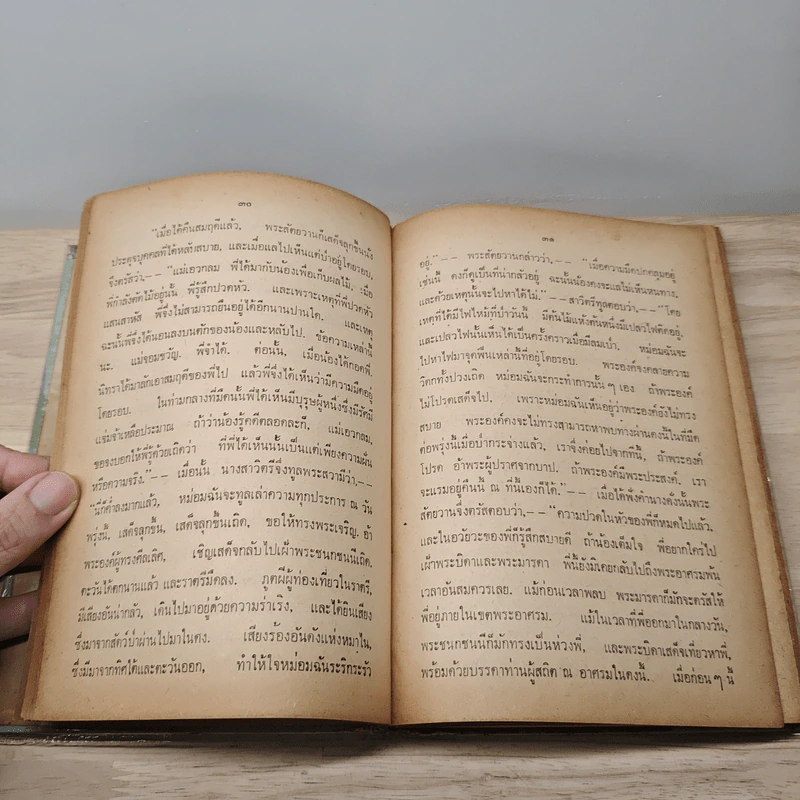 ๓๐
"เมื่อได้คืนสมฤดีแล้ว, พระสัตยวานก็เสด็จลุกขึ้นนั่ง
ประดุจบุคคลที่ได้หลับสบาย, และเมื่อแลไปเห็นแต่ป่าอยู่โดยรอบ,
จึงตรัสว่า,—— "แม่เอวกลม พี่ได้มากับน้องเพื่อเก็บผลไม้. เมื่อ
พี่กำลังตัดไม้อยู่นั้น พี่รู้สึกปวดหัว. และเพราะเหตุที่พี่ปวดหัว
แสนสาหัส พี่จึงไม่สามารถยืนอยู่ได้อีกนานปานใด. และเหตุ
ฉะนั้นพี่จึงได้นอนลงบนตักของน้องและหลับไป. ข้อความเหล่านี้
นะ. แม่จอมขวัญ. พี่จำได้. ต่อนั้น, เมื่อน้องได้กอดพี่,
นิทราได้มาลักเอาสมฤดีของพี่ไป แล้วพี่จึงได้เห็นว่ามีความมืดอยู่
โดยรอบ. ในท่ามกลางที่มืดนั้นพี่ได้เห็นมีบุรุษผู้หนึ่งซึ่งมีรัศมี
แจ่มจ้าเหลือประมาณ ถ้าว่าน้องรู้คดีตลอดละก็, แม่เอวกลม,
ขอจงบอกให้พี่รู้ด้วยเถิดว่า ที่พี่ได้เห็นนั้นเป็นแต่เพียงความฝัน
หรือความจริง." —— เมื่อนั้น นางสาวิตรีจึงทูลพระสวามีว่า,——
"นี่ก็ค่ำลงมากแล้ว, หม่อมฉันจะทูลเล่าความทุกประการ ณ วัน
พรุ่งนี้, เสด็จลุกขึ้น, เสด็จลุกขึ้นเถิด, ขอให้ทรงพระเจริญ. อ้า
พระองค์ผู้ทรงศีลเลิศ, เชญเสด็จกลับไปเฝ้าพระชนกชนนีเถิด.
ตะวันได้ตกนานแล้ว และราตรีมืดลง. ภูตผีผู้ท่องเที่ยวในราตรี,
มีเสียงอันน่ากลัว, เดินไปมาอยู่ด้วยความร่าเริง, และได้ยินเสียง
ซึ่งมาจากสัตว์ป่าผ่านไปมาในดง. เสียงร้องอันดังแห่งหมาใน,
ซึ่งมีมาจากทิศใต้และตะวันออก, ทำให้ใจหม่อมฉันระริกระรัว
๓๑
อยู่." —— พระสัตยวานกล่าวว่า,—— "เมื่อความมืดปกคลุมอยู่
เช่นนี้ ดงก็ดูเป็นที่น่ากลัวอยู่ ฉะนั้นน้องคงจะแลไม่เห็นหนทาง,
และด้วยเหตุนั้นจะไปหาได้ไม่." —— สาวิตรีทูลตอบว่า,—— "โดย
เหตุที่ได้มีไฟไหม้ที่ป่าวันนี้ มีต้นไม้แห้งต้นหนึ่งมีเปลวไฟติดอยู่,
และเปลวไฟนั้นเห็นได้เป็นครั้งคราวเมื่อมีลมเป่า, หม่อมฉันจะ
ไปหาไฟมาจุดฟืนเหล่านี้ที่อยู่โดยรอบ. พระองค์จงคลายความ
วิตกทั้งปวงเถิด หม่อมฉันจะกระทำการนั้น ๆ เอง ถ้าพระองค์
ไม่โปรดเสด็จไป. เพราะหม่อมฉันเห็นอยู่ว่าพระองค์ยังไม่ทรง
สบาย พระองค์คงจะไม่ทรงสามารถหาพบทางผ่านดงนี้ในที่มืด
ต่อพรุ่งนี้เมื่อป่ากระจ่างแล้ว, เราจึ่งค่อยไปจากที่นี้, ถ้าพระองค์
โปรด อ้าพระผู้ปราศจากบาป. ถ้าพระองค์มีพระประสงค์, เรา
จะแรมอยู่คืนนี้ ณ ที่นี้เองก็ได้." —— เมื่อได้ฟังคำนางดั่งนั้นพระ
สัตยวานจึงตรัสตอบว่า,—— "ความปวดในหัวของพี่ก็หมดไปแล้ว,
และในอวัยวะของพี่ก็รู้สึกสบายดี ถ้าน้องเต็มใจ พี่อยากใคร่ไป
เฝ้าพระบิดาและพระมารดา พี่นี้ยังมิเคยกลับไปถึงพระอาศรมพ้น
เวลาอันสมควรเลย. แม้ก่อนเวลาพลบ พระมารดาก็มักจะตรัสให้
พี่อยู่ภายในเขตพระอาศรม. แม้ในเวลาที่พี่ออกมาในกลางวัน,
พระชนกชนนีก็มักทรงเป็นห่วงพี่, และพระบิดาเสด็จเที่ยวหาพี่,
พร้อมด้วยบรรดาท่านผู้สถิต ณ อาศรมในดงนี้. เมื่อก่อน ๆ นี้